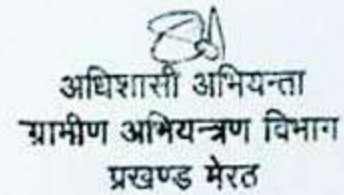 अधिशासी अभियन्ता
ग्रामीण अभियन्त्रण विभाग
प्रखण्ड मेरठ